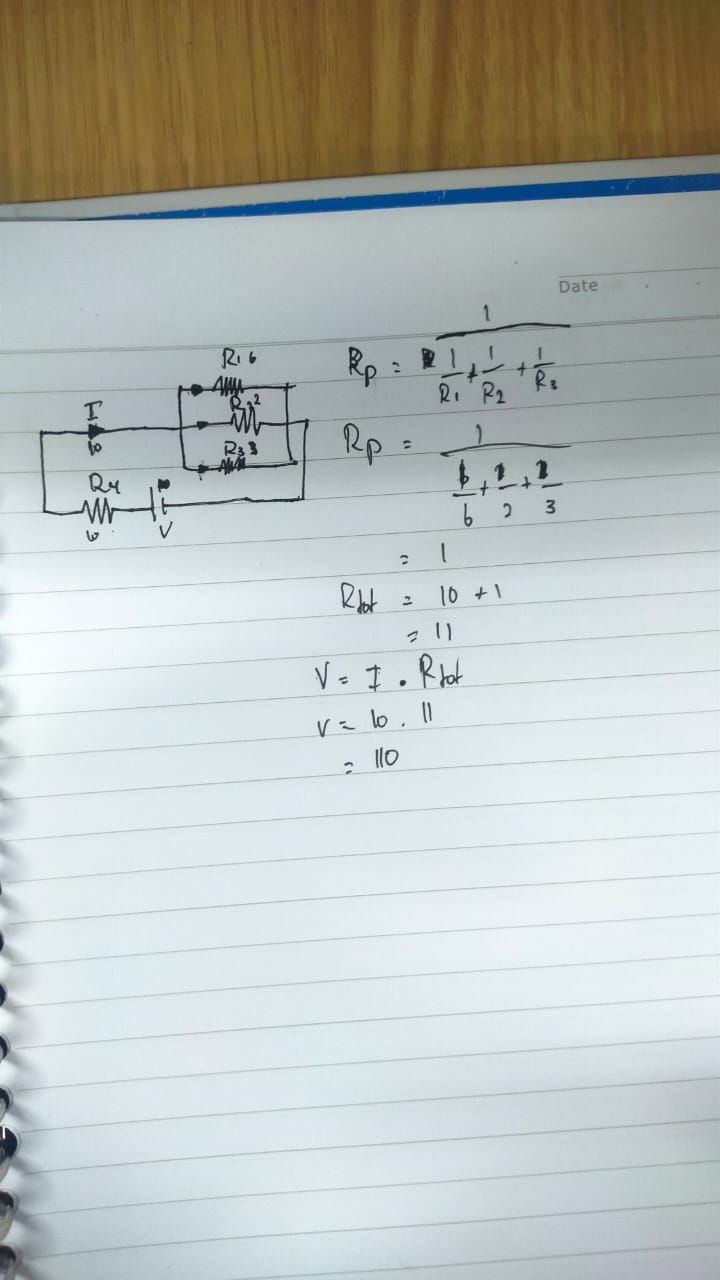 Date
R₁ 6
R₂ 2
R₃ 3
I
10
R₄
10
V
Rp = 1 / (1/R₁ + 1/R₂ + 1/R₃)
Rp = 1 / (1/6 + 1/2 + 1/3)
= 1
Rtot = 10 + 1
= 11
V = I . Rtot
V = 10 . 11
= 110